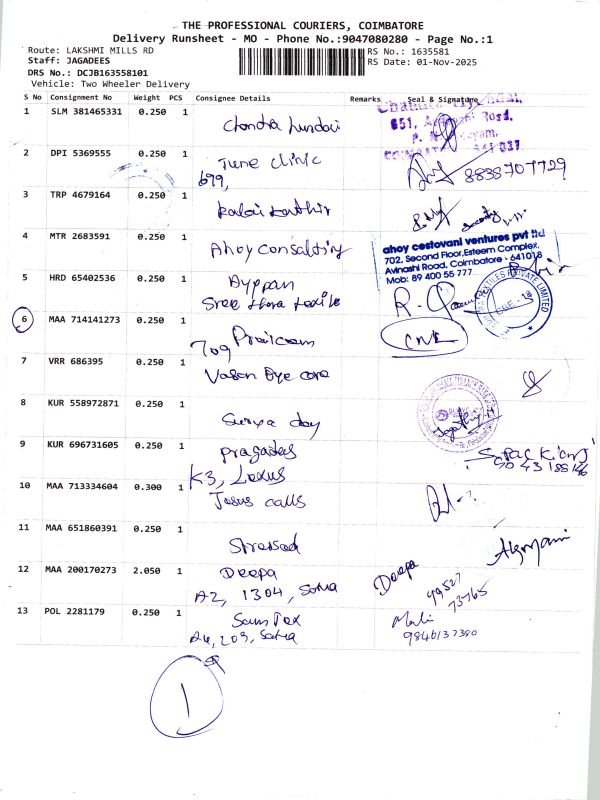 THE PROFESSIONAL COURIERS, COIMBATORE
Delivery Runsheet - MO - Phone No.:9047080280 - Page No.:1
Route: LAKSHMI MILLS RD
RS No.: 1635581
Staff: JAGADEES
RS Date: 01-Nov-2025
DRS No.: DCJB163558101
Vehicle: Two Wheeler Delivery
S No Consignment No Weight PCS Consignee Details Remarks Seal & Signature
1 SLM 381465331 0.250 1
651,
2 DPI 5369555 0.250 1 June clinic 8838707729
699,
3 TRP 4679164 0.250 1 Kalai Kathir
4 MTR 2683591 0.250 1 Ahoy consalting
ahoy cestovani ventures pvt ltd
702, Second Floor, Esteem Complex,
Avinashi Road, Coimbatore - 641018
Mob: 89 400 55 777
5 HRD 65402536 0.250 1 Ayppan
Sree
6 MAA 714141273 0.250 1
709
CNE
7 VRR 686395 0.250 1 Vasan Eye care
8 KUR 558972871 0.250 1 Surya day
9 KUR 696731605 0.250 1 Pragades
K3, Lexus
10 MAA 713334604 0.300 1 Jesus calls
11 MAA 651860391 0.250 1 Stressed
12 MAA 200170273 2.050 1 Deepa Deepa
A2, 1304, Soma
99527
73765
13 POL 2281179 0.250 1 Sam Tex
A4, 203,
9846137380
1